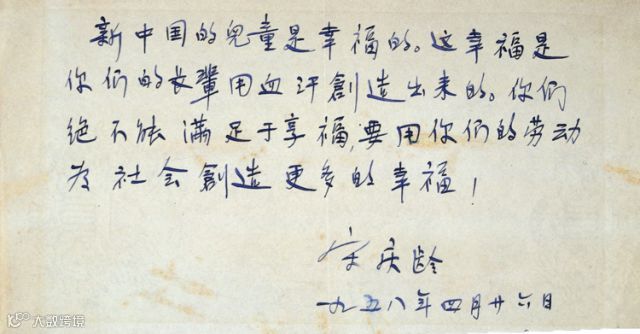 新中国的兒童是幸福的。这幸福是
你们的长輩用血汗創造出来的。你们
绝不能满足于享福,要用你们的劳动
为社会創造更多的幸福！
宋庆龄
一九五八年四月廿六日
大数跨境